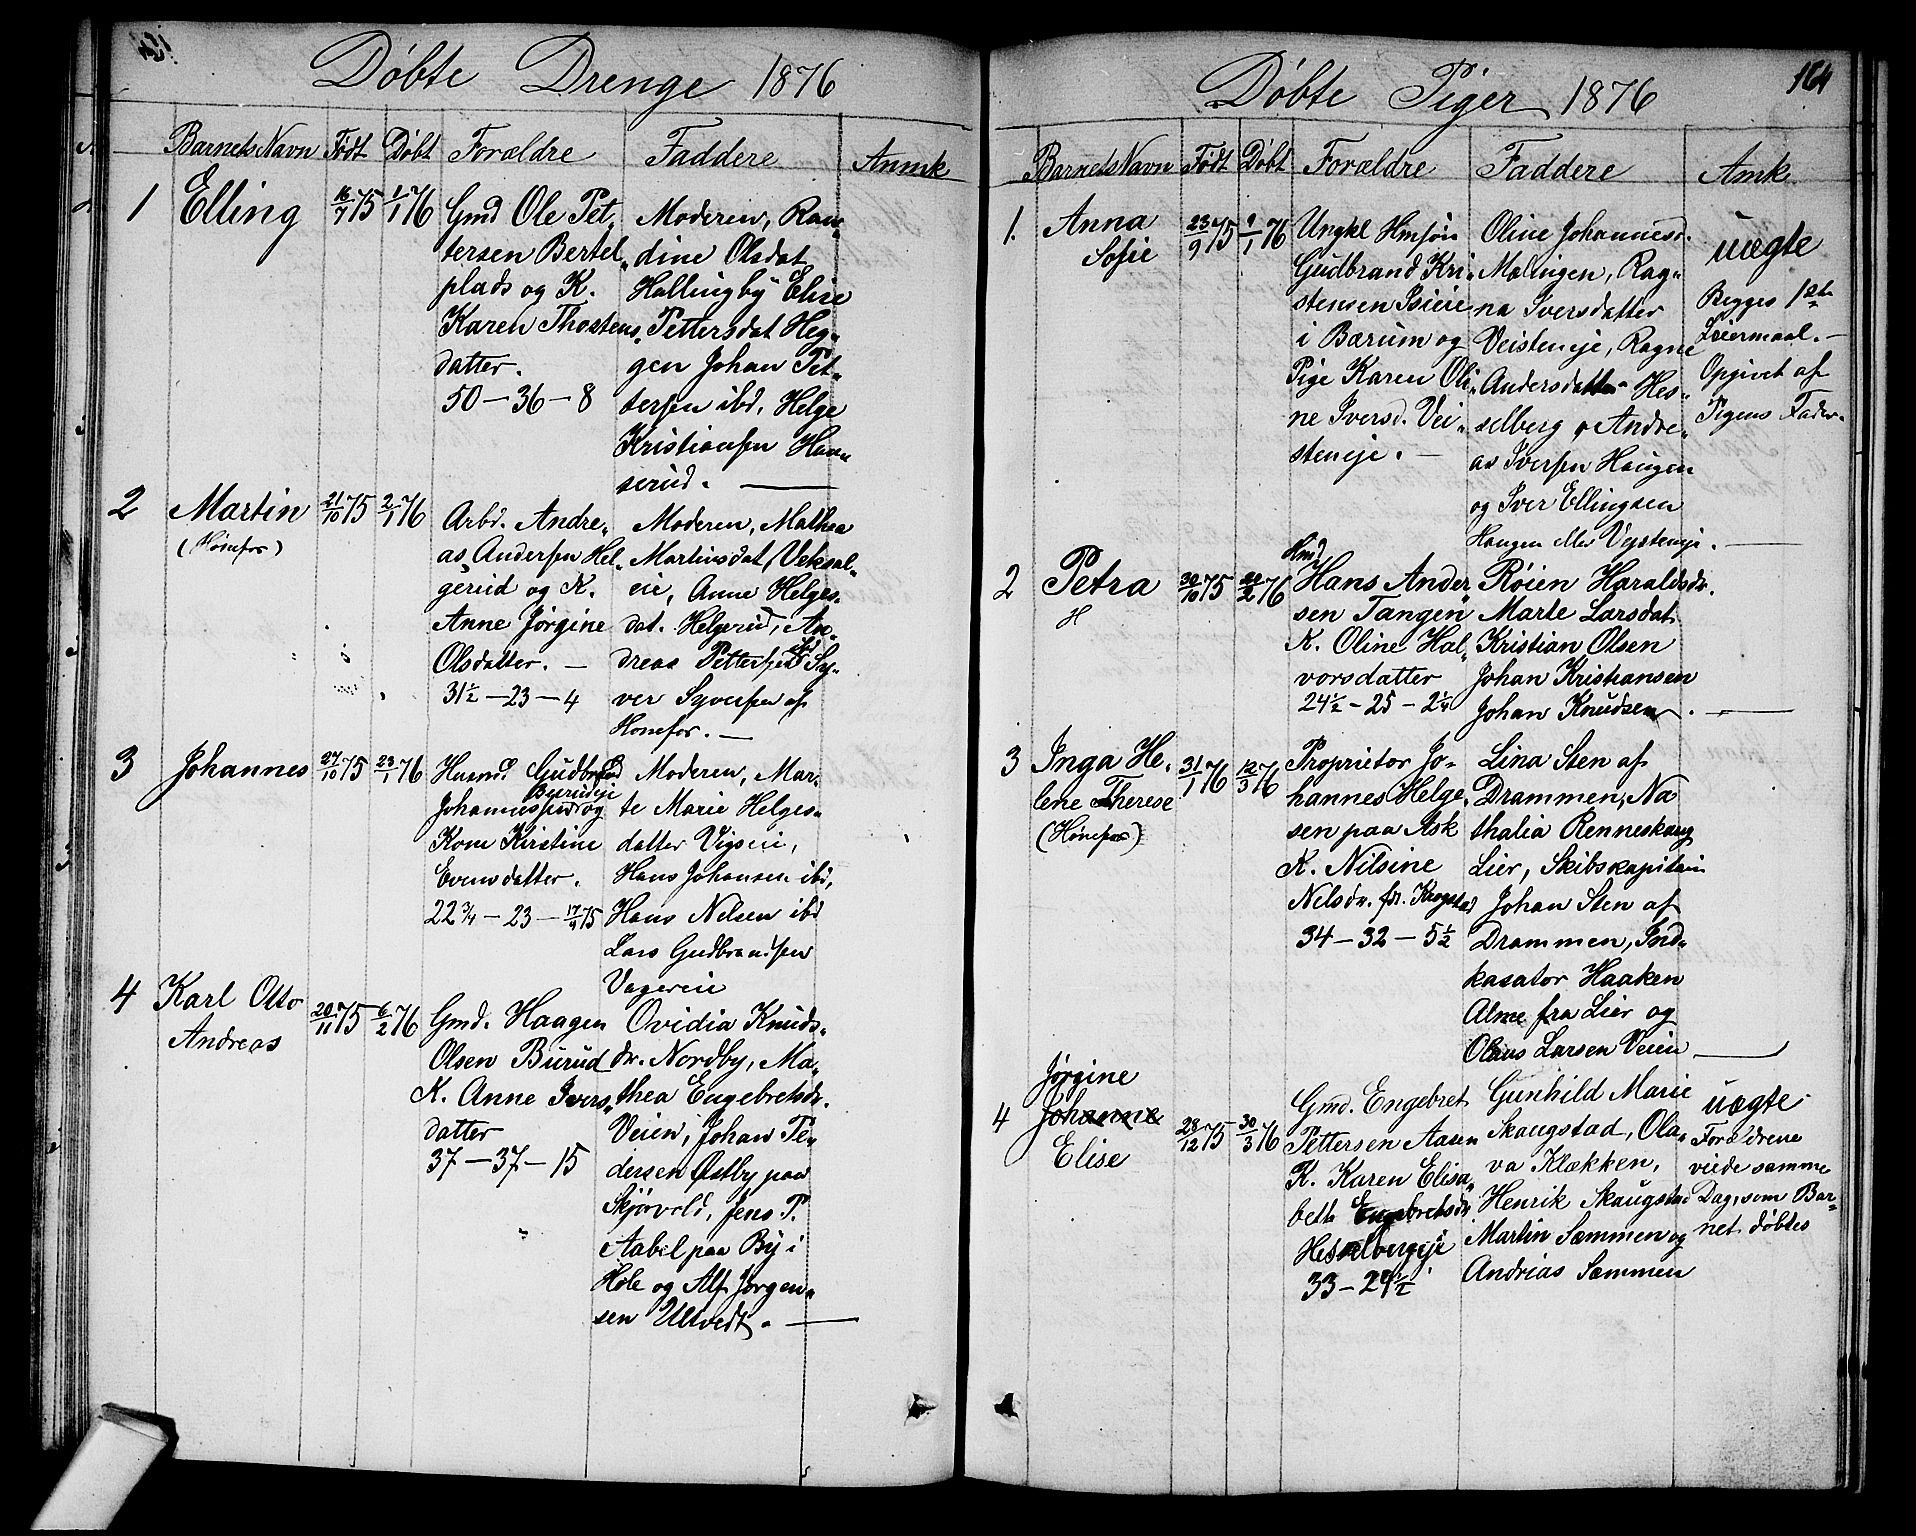 Døbte Drenge 1876
Barnets Navn Født Døbt Forældre Faddere Anmk
1 Elling 16/7 75 1/1 76
Gmd Ole Pet,
tersen Bertel„
plads og K.
Karen Thostens„
datter.
50 — 36 — 8
Moderen, Ran„
dine Olsdat
Hallingby Elise
Pettersdat Heg„
gen Johan Pet„
tersen ibd, Helge
Kristiansen Hau„
serud. —
2 Martin 21/10 75 2/1 76
(Hønefos)
Arbd. Andre„
as Andersen Hel„
gerud og K.
Anne Jørgine
Olsdatter. —
31½ — 23 — 4
Moderen, Mathea
Martinsdat Veksal„
eie, Anne Helges„
dat. Helgerud, An„
dreas Pettersen ibd Sy„
ver Syversen af
Hønefos. —
3 Johannes 27/10 75 23/1 76
Husmd Gudbrand
Burudeje
Johannessen og
Kone Kirstine
Evensdatter.
22¾ — 23 — 17/9 75
Moderen, Mar„
te Marie Helges„
datter Vigseie,
Hans Johansen ibd,
Hans Nelsen ibd
Lars Gudbrandsen
Vagereie
4 Karl Otto
Andreas
20/11 75 6/2 76
Gmd. Haagen
Olsen Burud
K. Anne Ivers„
datter
37 — 37 — 15
Ovidia Knuds„
dr. Nordby, Ma„
thea Engebretsdr.
Veien, Johan Pe„
dersen Østby paa
Skjørvold, Jens P.
Aabel paa By i
Hole og Alf Jørgen„
sen Ultvedt. —
Døbte Piger 1876
164
Barnets Navn Født Døbt Forældre Faddere Amk
1. Anna
Sofie
23/9 75 9/1 76
Ungkl Hmsøn
Gudbrand Kri„
stensen
i Bærum og
Pige Karen Oli„
ne Iversd. Vei„
steneje. —
Oline Johannesd.
Malingen, Rag„
na Iversdatter
Veisteneje, Ragne
Andersdatter Hes„
selberg o Andre„
as Iversen Haugen
og Iver Ellingsen
Haugen eller Vejsteneje. —
uægte
Begges 1ste
Leiermaal. —
Opgivet af
Pigens Fader.
2 Petra 30/10 75 20/2 76
H
Hmd
Hans Ander„
sen Tangen
K. Oline Hal„
vorsdatter
24½ — 25 — 2¼
Røien Haraldsdr.
Marte Larsdat
Kristian Olsen
Johan Kristiansen
Johan Knudsen. —
3 Inga He„
lene Therese
(Hønefos)
31/1 76 12/3 76
Proprietor Jo„
hannes Helge„
sen paa Ask
K. Nilsine
Nilsdr. fr. Krogstad
34 — 32 — 5½
Lina Sten af
Drammen, Na
thalia Renneskaug
Lier, Skibskapitain
Johan Sten af
Drammen, Ind„
kasator Haaken
Alme fra Lier og
Olaus Larsen Veien —
Jørgine
4 Johanne
Elise
28/12 75 30/3 76
Gmd. Engebret
Pettersen Aasen
K. Karen Elisa„
beth Engebretsdr
Hesselbergeje
33 — 24½
Gunhild Marie
Skaugstad, Ola„
va Klækken,
Henrik Skaugstad
Martin Sæmmen og
Andrias Sæmmen
uægte
Forældrene
viede samme
Dag, som Bar„
net døbtes